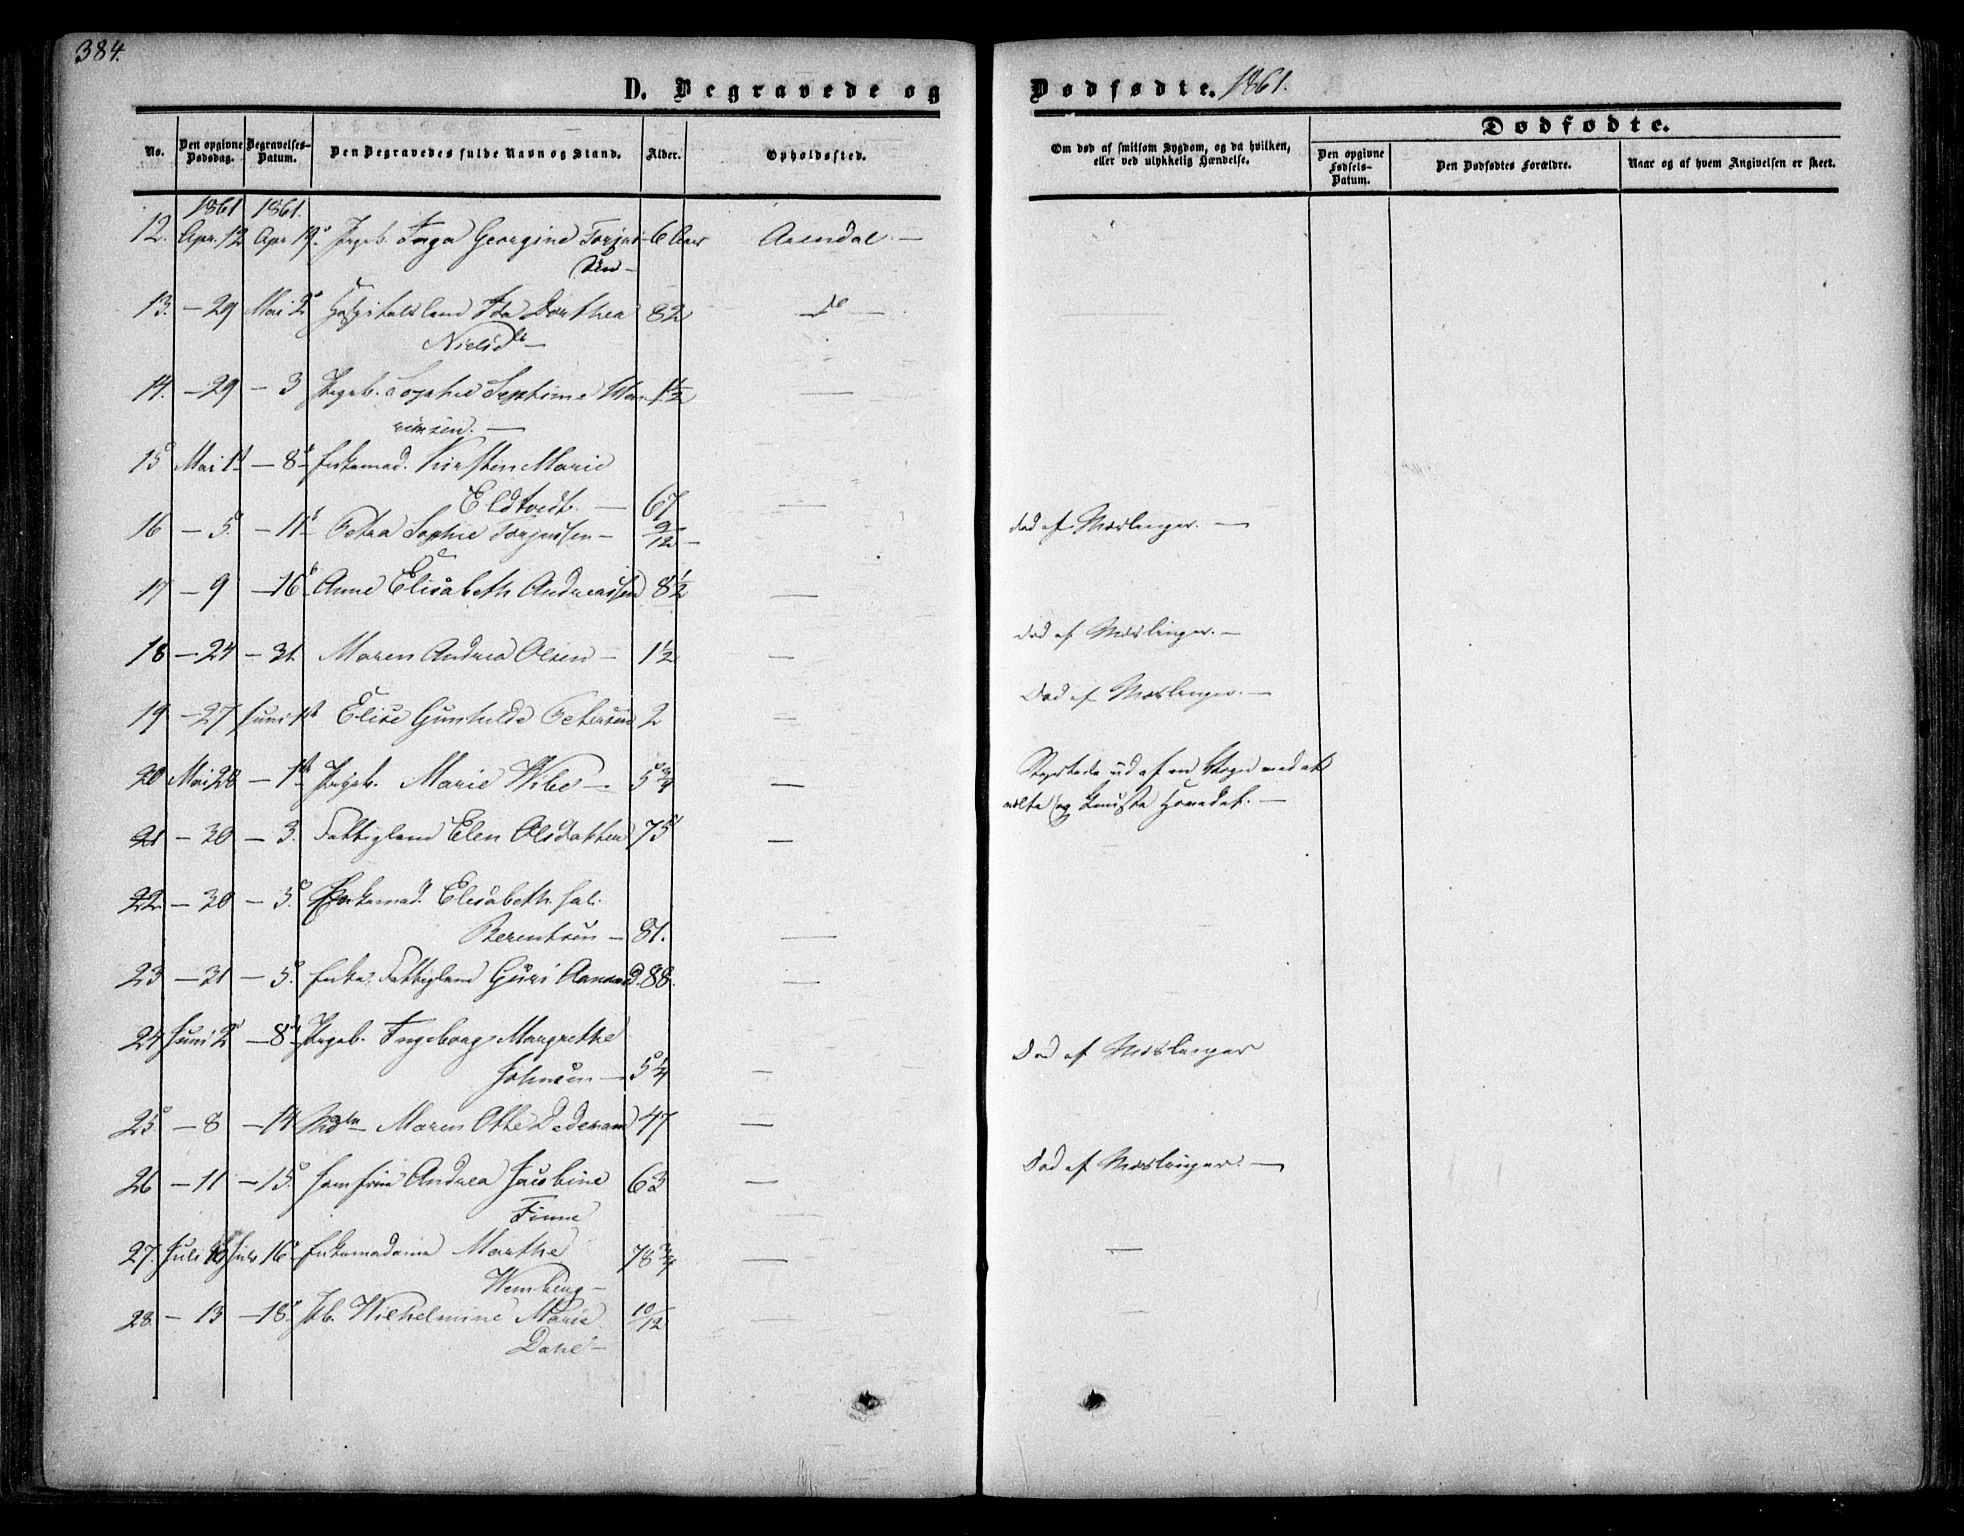 384.
D. Begravede og
Dødfødte. 1861.
No.
Den opgivne Dødsdag.
Begravelses-Datum.
Den Begravedes fulde Navn og Stand.
Alder.
Opholdssted.
Om død af smitsom Sygdom, og da hvilken, eller ved ulykkelig Hændelse.
Dødfødte.
Den opgivne Fødsels-Datum.
Den Dødfødtes Forældre.
Naar og af hvem Angivelsen er skeet.
1861 1861.
12. Apr. 12 Apr. 19 Pigeb. Inga Georgine Torjus- 6 Aar Arendal. —
sen —
13. — 29 Mai 2 Hospitalslem Ida Dorthea 82 — do —
Nielsd. —
14. — 29 — 3 Pigeb. Sophie Septime 1 1/2 —
15 Mai 1 — 8 Enkemad. Kirsten Marie
Eldtvedt. — 67 —
16 — 5 — 11 Petra Sophie Torjussen — 9/12 — død af Mæslinger. —
17 — 9 — 16 Anne Elisabeth Andreassen 8 1/2 —
18 — 24 — 31 Maren Andrea Olsen — 1 1/2 — Død af Mæslinger. —
19 — 27 Juni 1 Elise Gunhilde Petersen 2 — Død af Mæslinger. —
20 Mai 28 — 1 Pigeb. Marie Wibe — 5 3/4 — Styrtede ud af en Vogn med at
vælte og knuste Hovedet. —
21 — 30 — 3. Fattiglem Elen Olsdatter 75 —
22 — 30 — 5. Enkemad. Elisabeth Sal.
Berentsen — 81. —
23 — 31 — 5. Enke, Fattiglem Guri D. 88. —
24 Juni 2 — 8 Pigeb. Ingeborg Margrethe
Johnsen — 5 1/4 — Død af Mæslinger
25. — 8 — 14 Maren Otte Dedekam 47 —
26 — 11 — 15. Jomfrue Andrea Jacobine 63 — Død af Mæslinger. —
Finne
27. Juli Juli 16 Enkemadame Marthe 78 3/4 — —
Wemberg —
28. — 13 — 18. Pb. Wilhelmine Marie 10/12 —
Dahl —